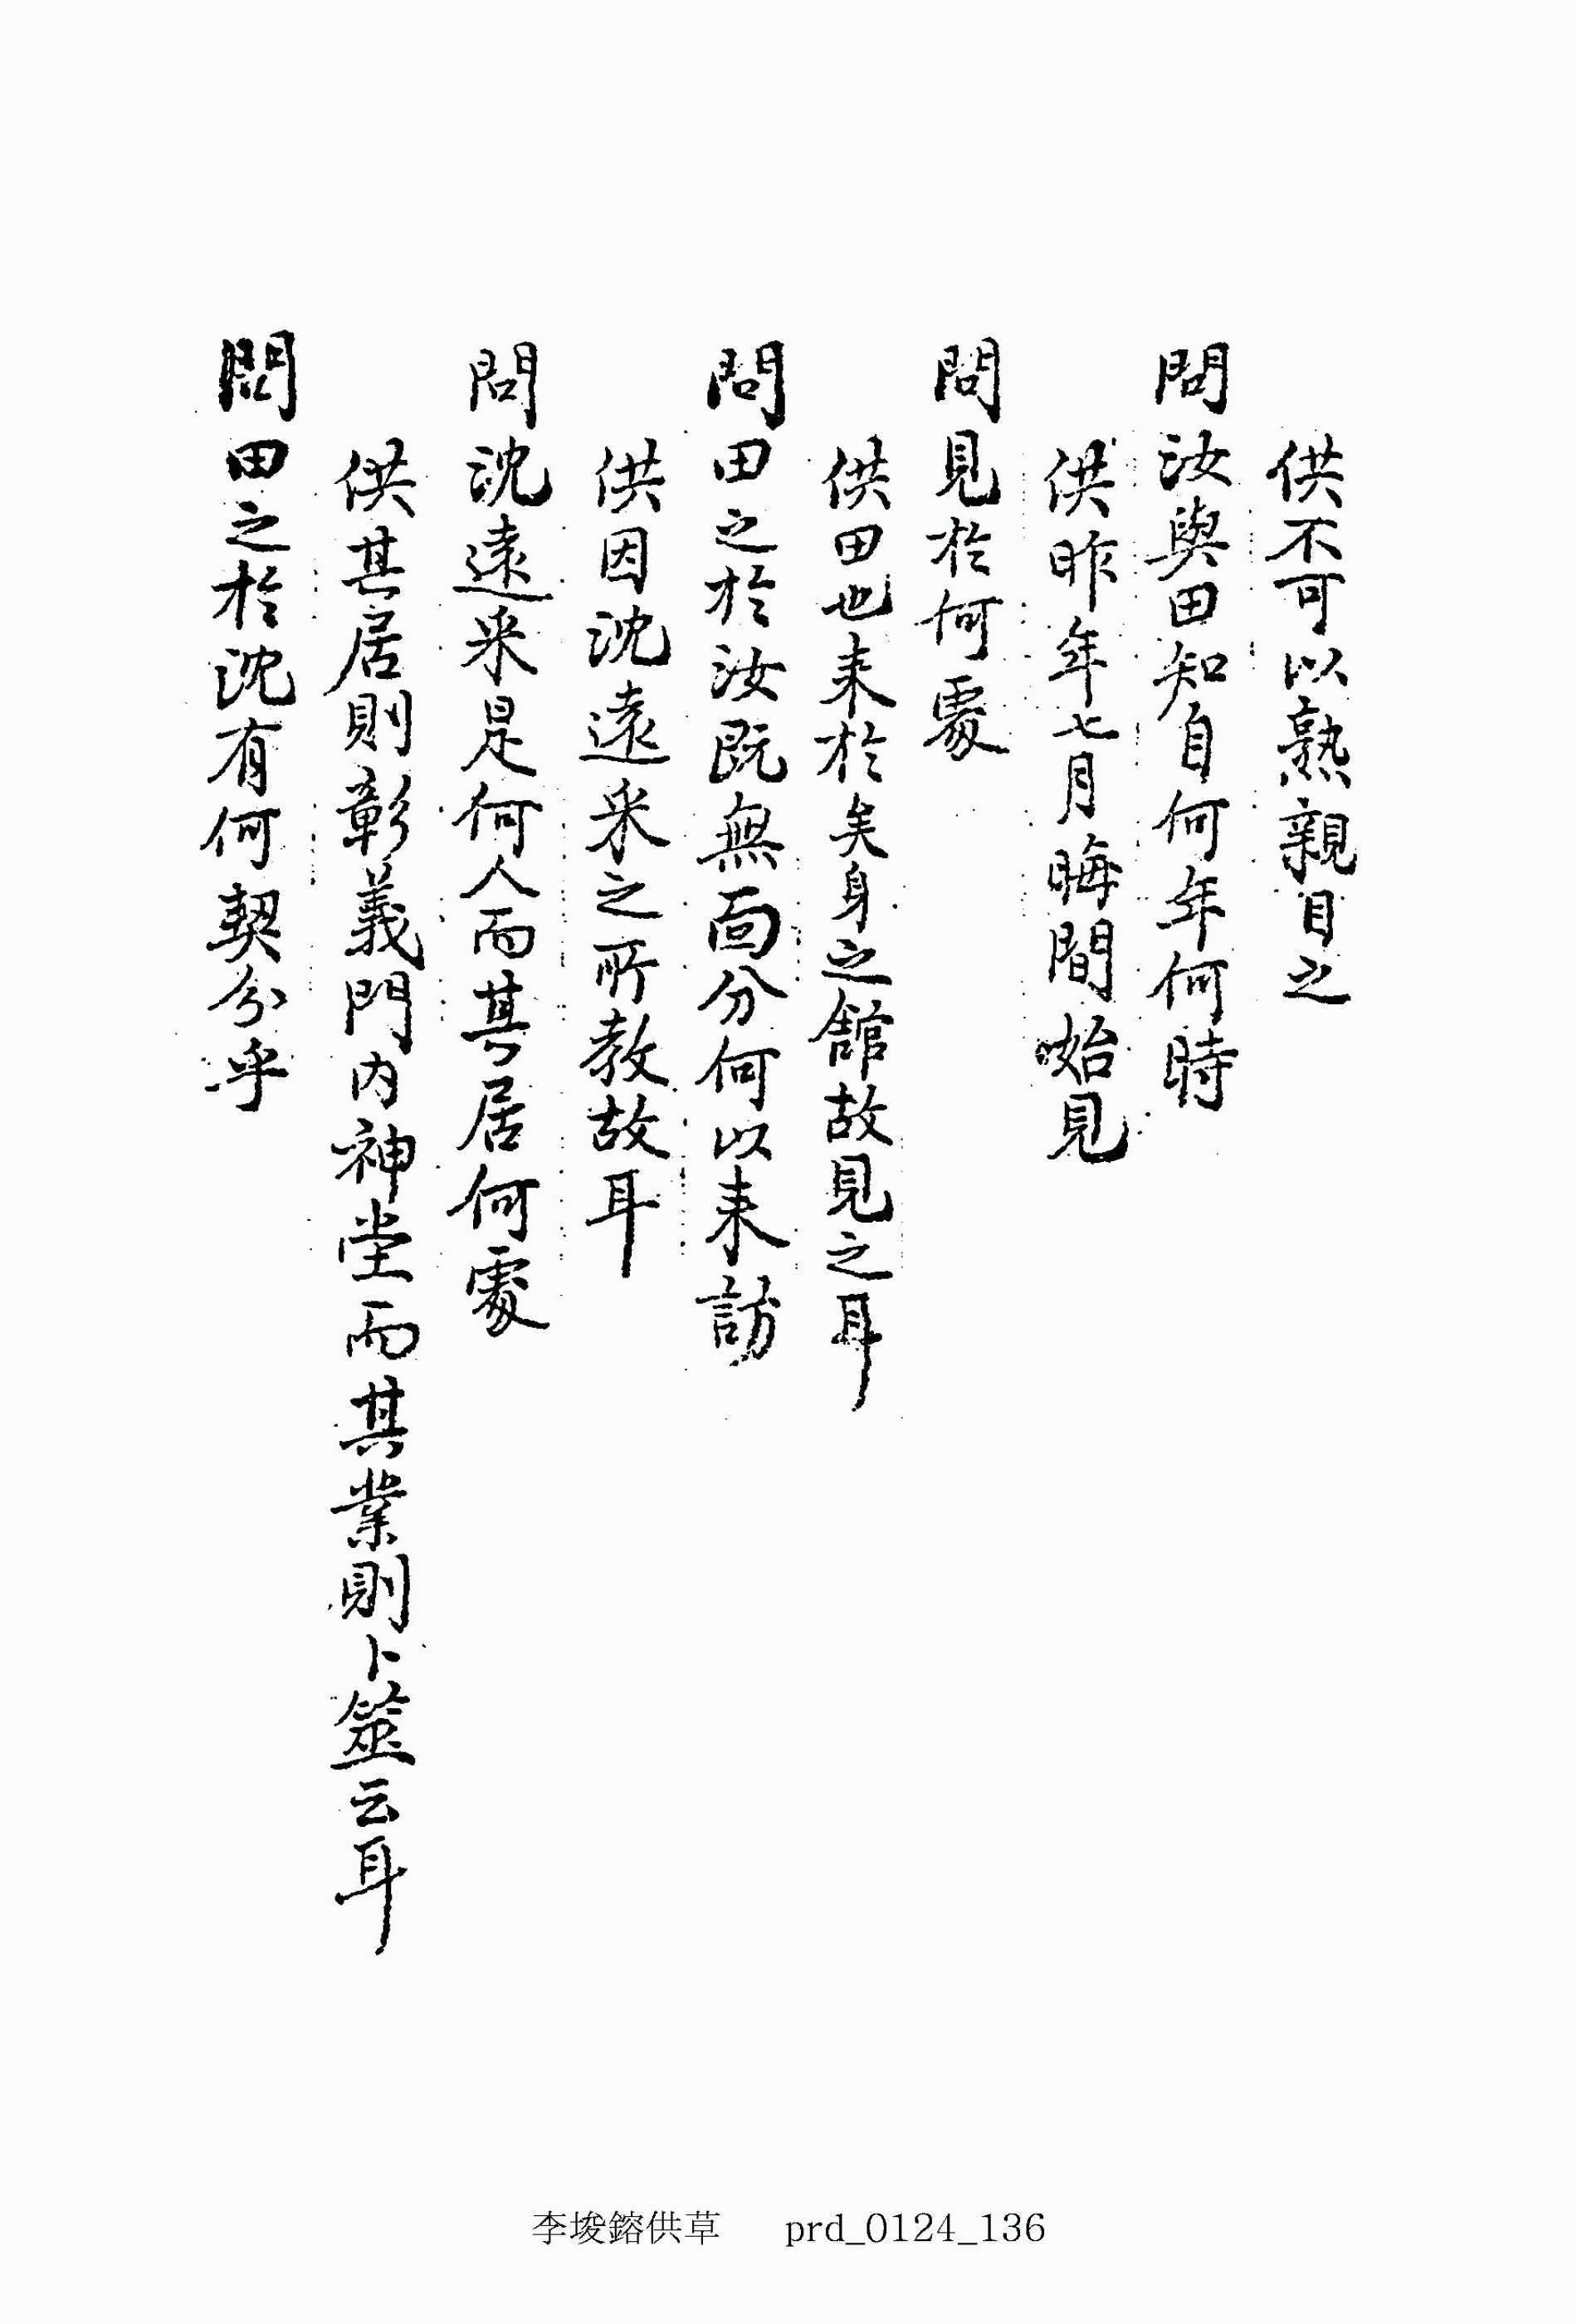 供不可以熟親目之
問汝與田知自何年何時
供昨年七月晦間始見
問見於何處
供田也来於矣身之舘故見之耳
問田之於汝既無面分何以来訪
供因沈遠采之所教故耳
問沈遠采是何人而其居何處
供其居則彰義門内神堂而其業則卜筮云耳
問田之於沈有何契分乎
李埈鎔供草 prd_0124_136